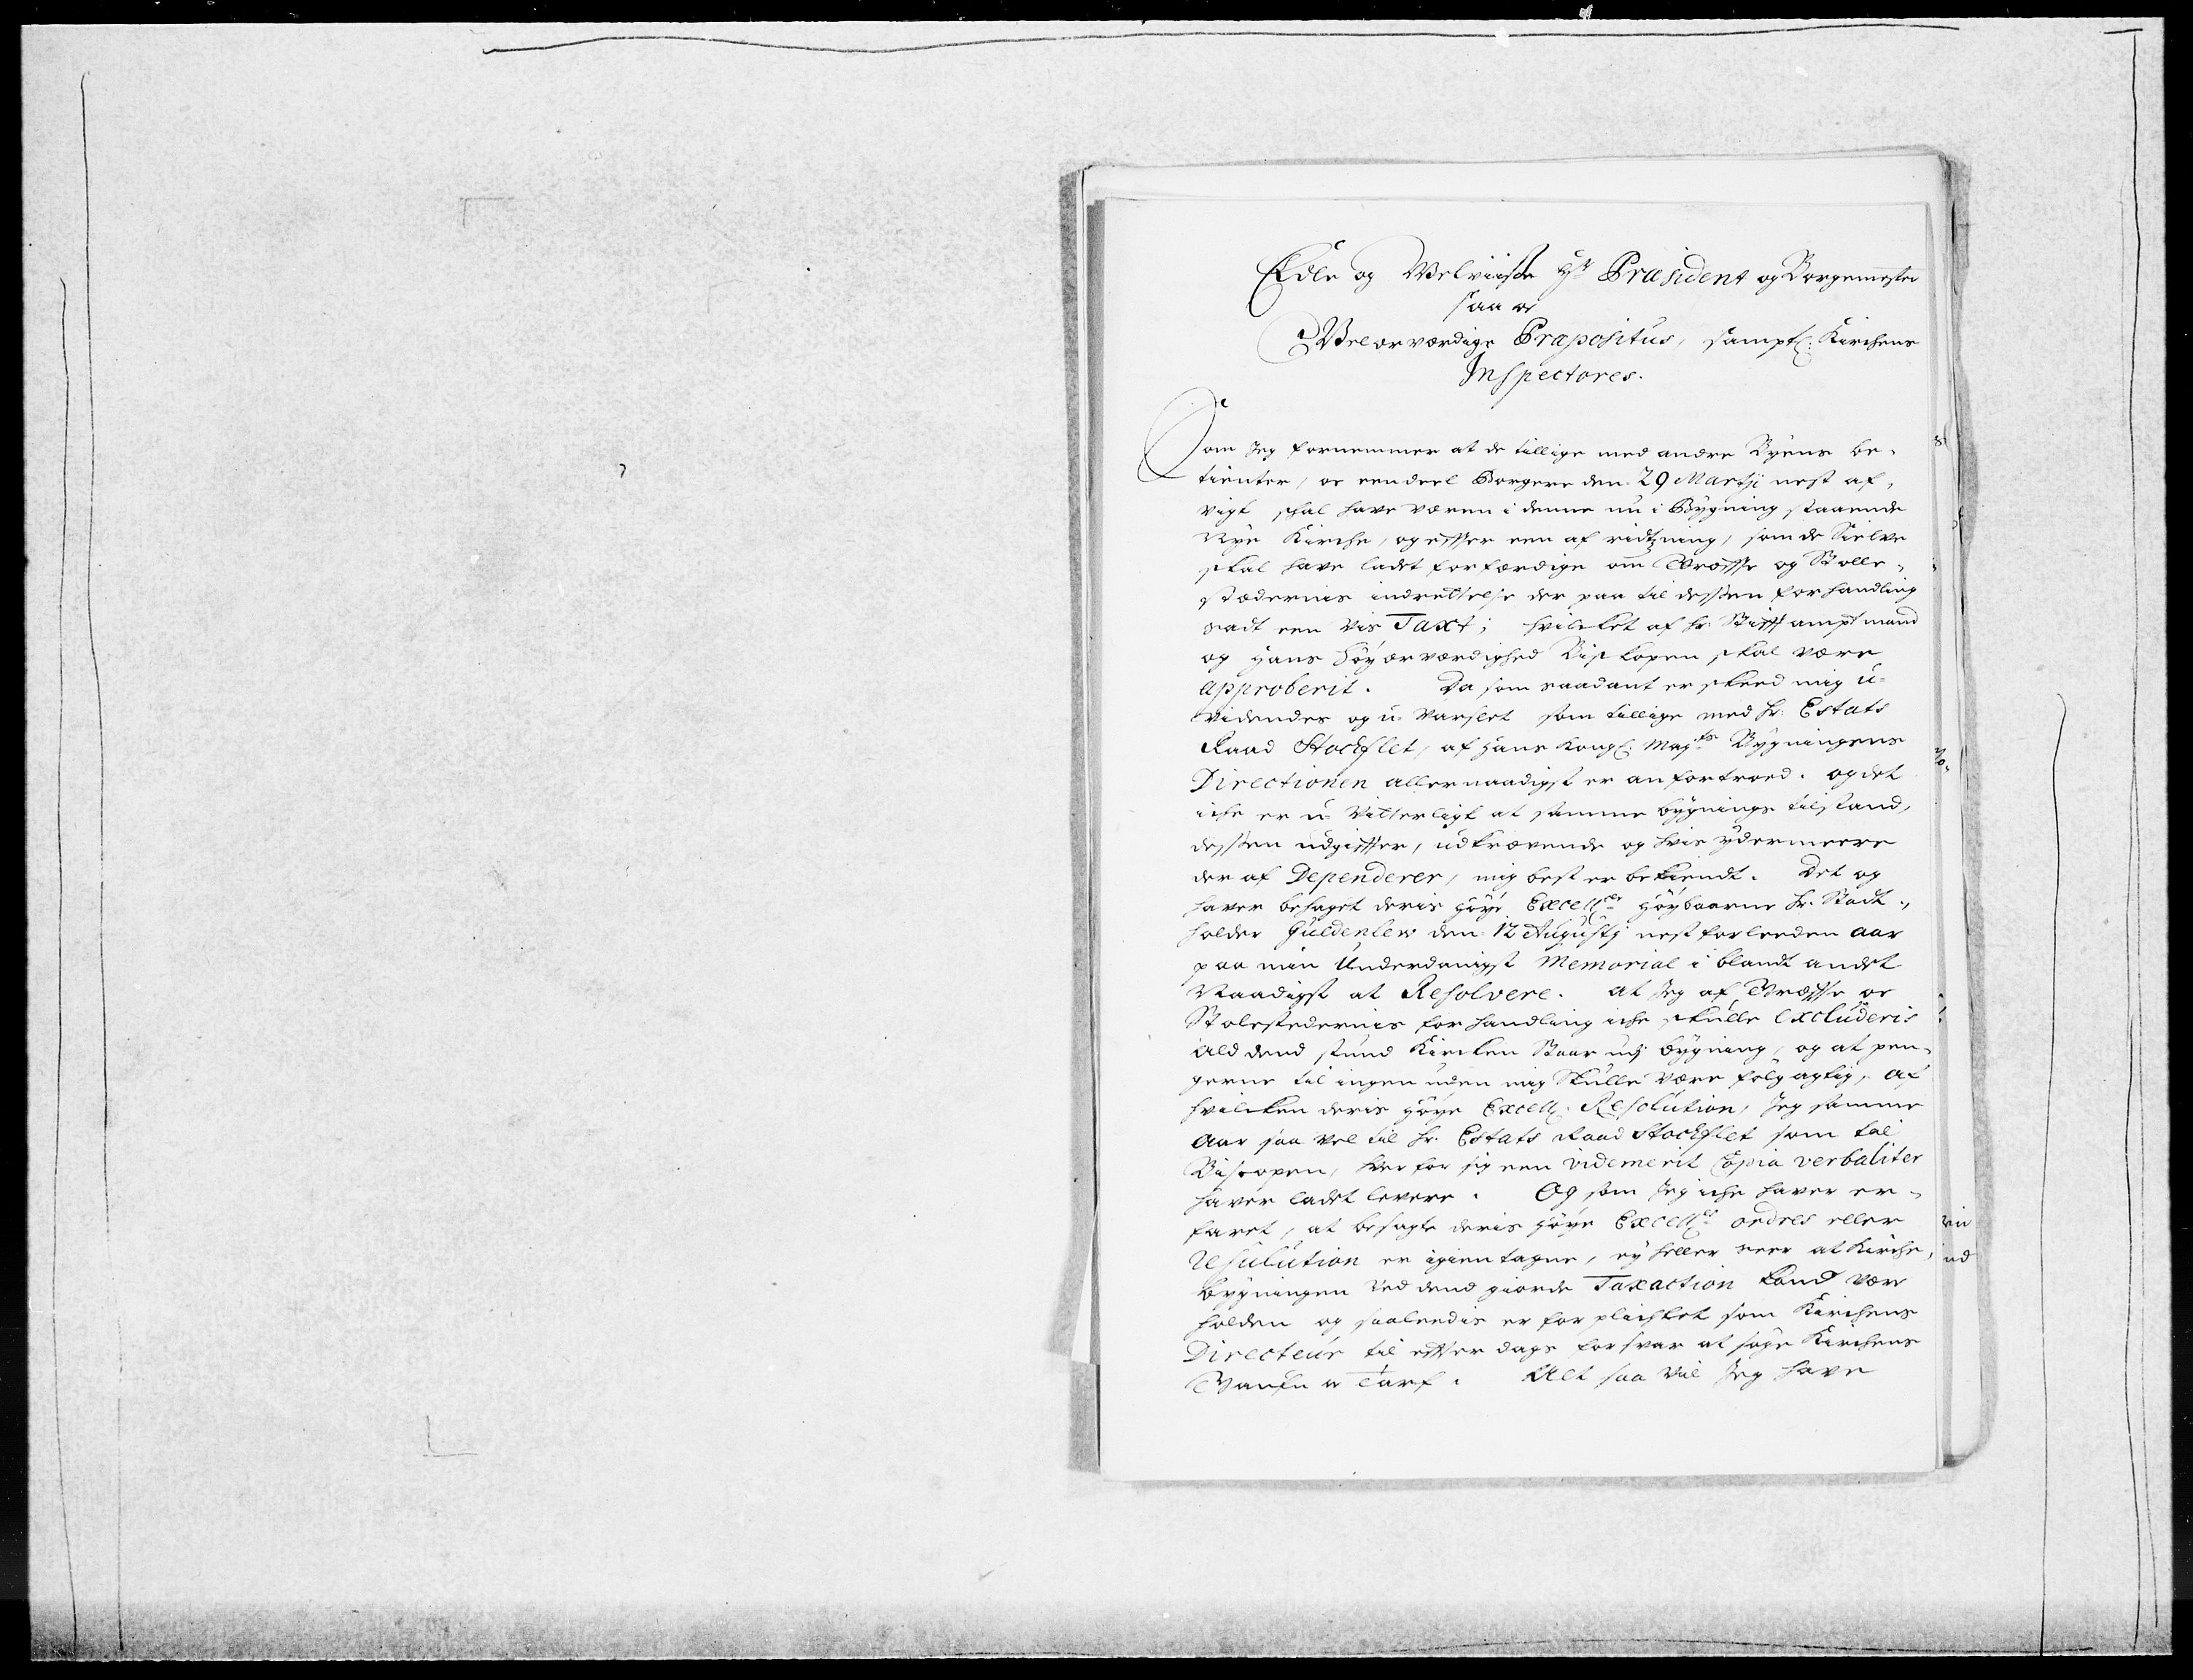 Edle og Welviise Hr Præsident og Borgemester
saa oc
Welærværdige Præpositus, sampt: Kirchens
Inspectores.
Som Jeg fornemmer at de tillige med andre Byens be-
tienter, oc een deel Borgere den 29 Martji nest af-
vigt skal have været i denne nu i Bygning staaende
Nye Kirche, og effter een af ridtzning, som de Sielve
skal have ladet forfærdige om Græffve og Stolle-
stædernis indrettelse der paa til dessen forhandling
sadt een vis Taxt; hvilcket af hr. Stifft amptmand
og Hans Høyærværdighed Biskopen skal være
approberit. Da som saadant er skeed mig u-
videndes og u-varslet som tillige med hr. Estats
Raad Stockflet, af Hans Kongl: Mayts Bygningens
Directionen allernaadigst er anfortroed. og det
iche er u-vitterligt at samme bygnings tilstand,
dessen udgiffter, udkrævende og hvis ydermeere
der af Dependerer, mig best er bekiendt. Det og
haver behaget deris Høye Excellce Høybaarne Hr. Stadt-
holder Güldenlew den 12 Augustj nest forleeden aar
paa min Underdanigst Memorial i blandt andet
Naadigst at Resolvere. at Jeg af Græffve oc
Stolestedernis forhandling iche skulle excluderis
ald dend stund Kircken Staar udj bygning, og at pen-
gerne til ingen uden mig Skulle være følgagtig, af
hvilcken deris Høye Excell: Resolution, Jeg samme
Aar saa vel til Hr. Estats Raad Stockflet som til
Biscopen, hver for sig een videmerit Copia verbaliter
haver ladet levere. Og som Jeg iche haver er-
faret, at besagte deris Høye Excells ordres eller
resulution er igien tagne, ey heller seer at Kirche-
bygningen ved dend giorde Taxaction kand vær
holden og saaleedis er forplichtet som Kirchens
Directeur til effter dags forsvar at søge Kirchens
Gaufn oc Tarf. Alt saa vil Jeg have